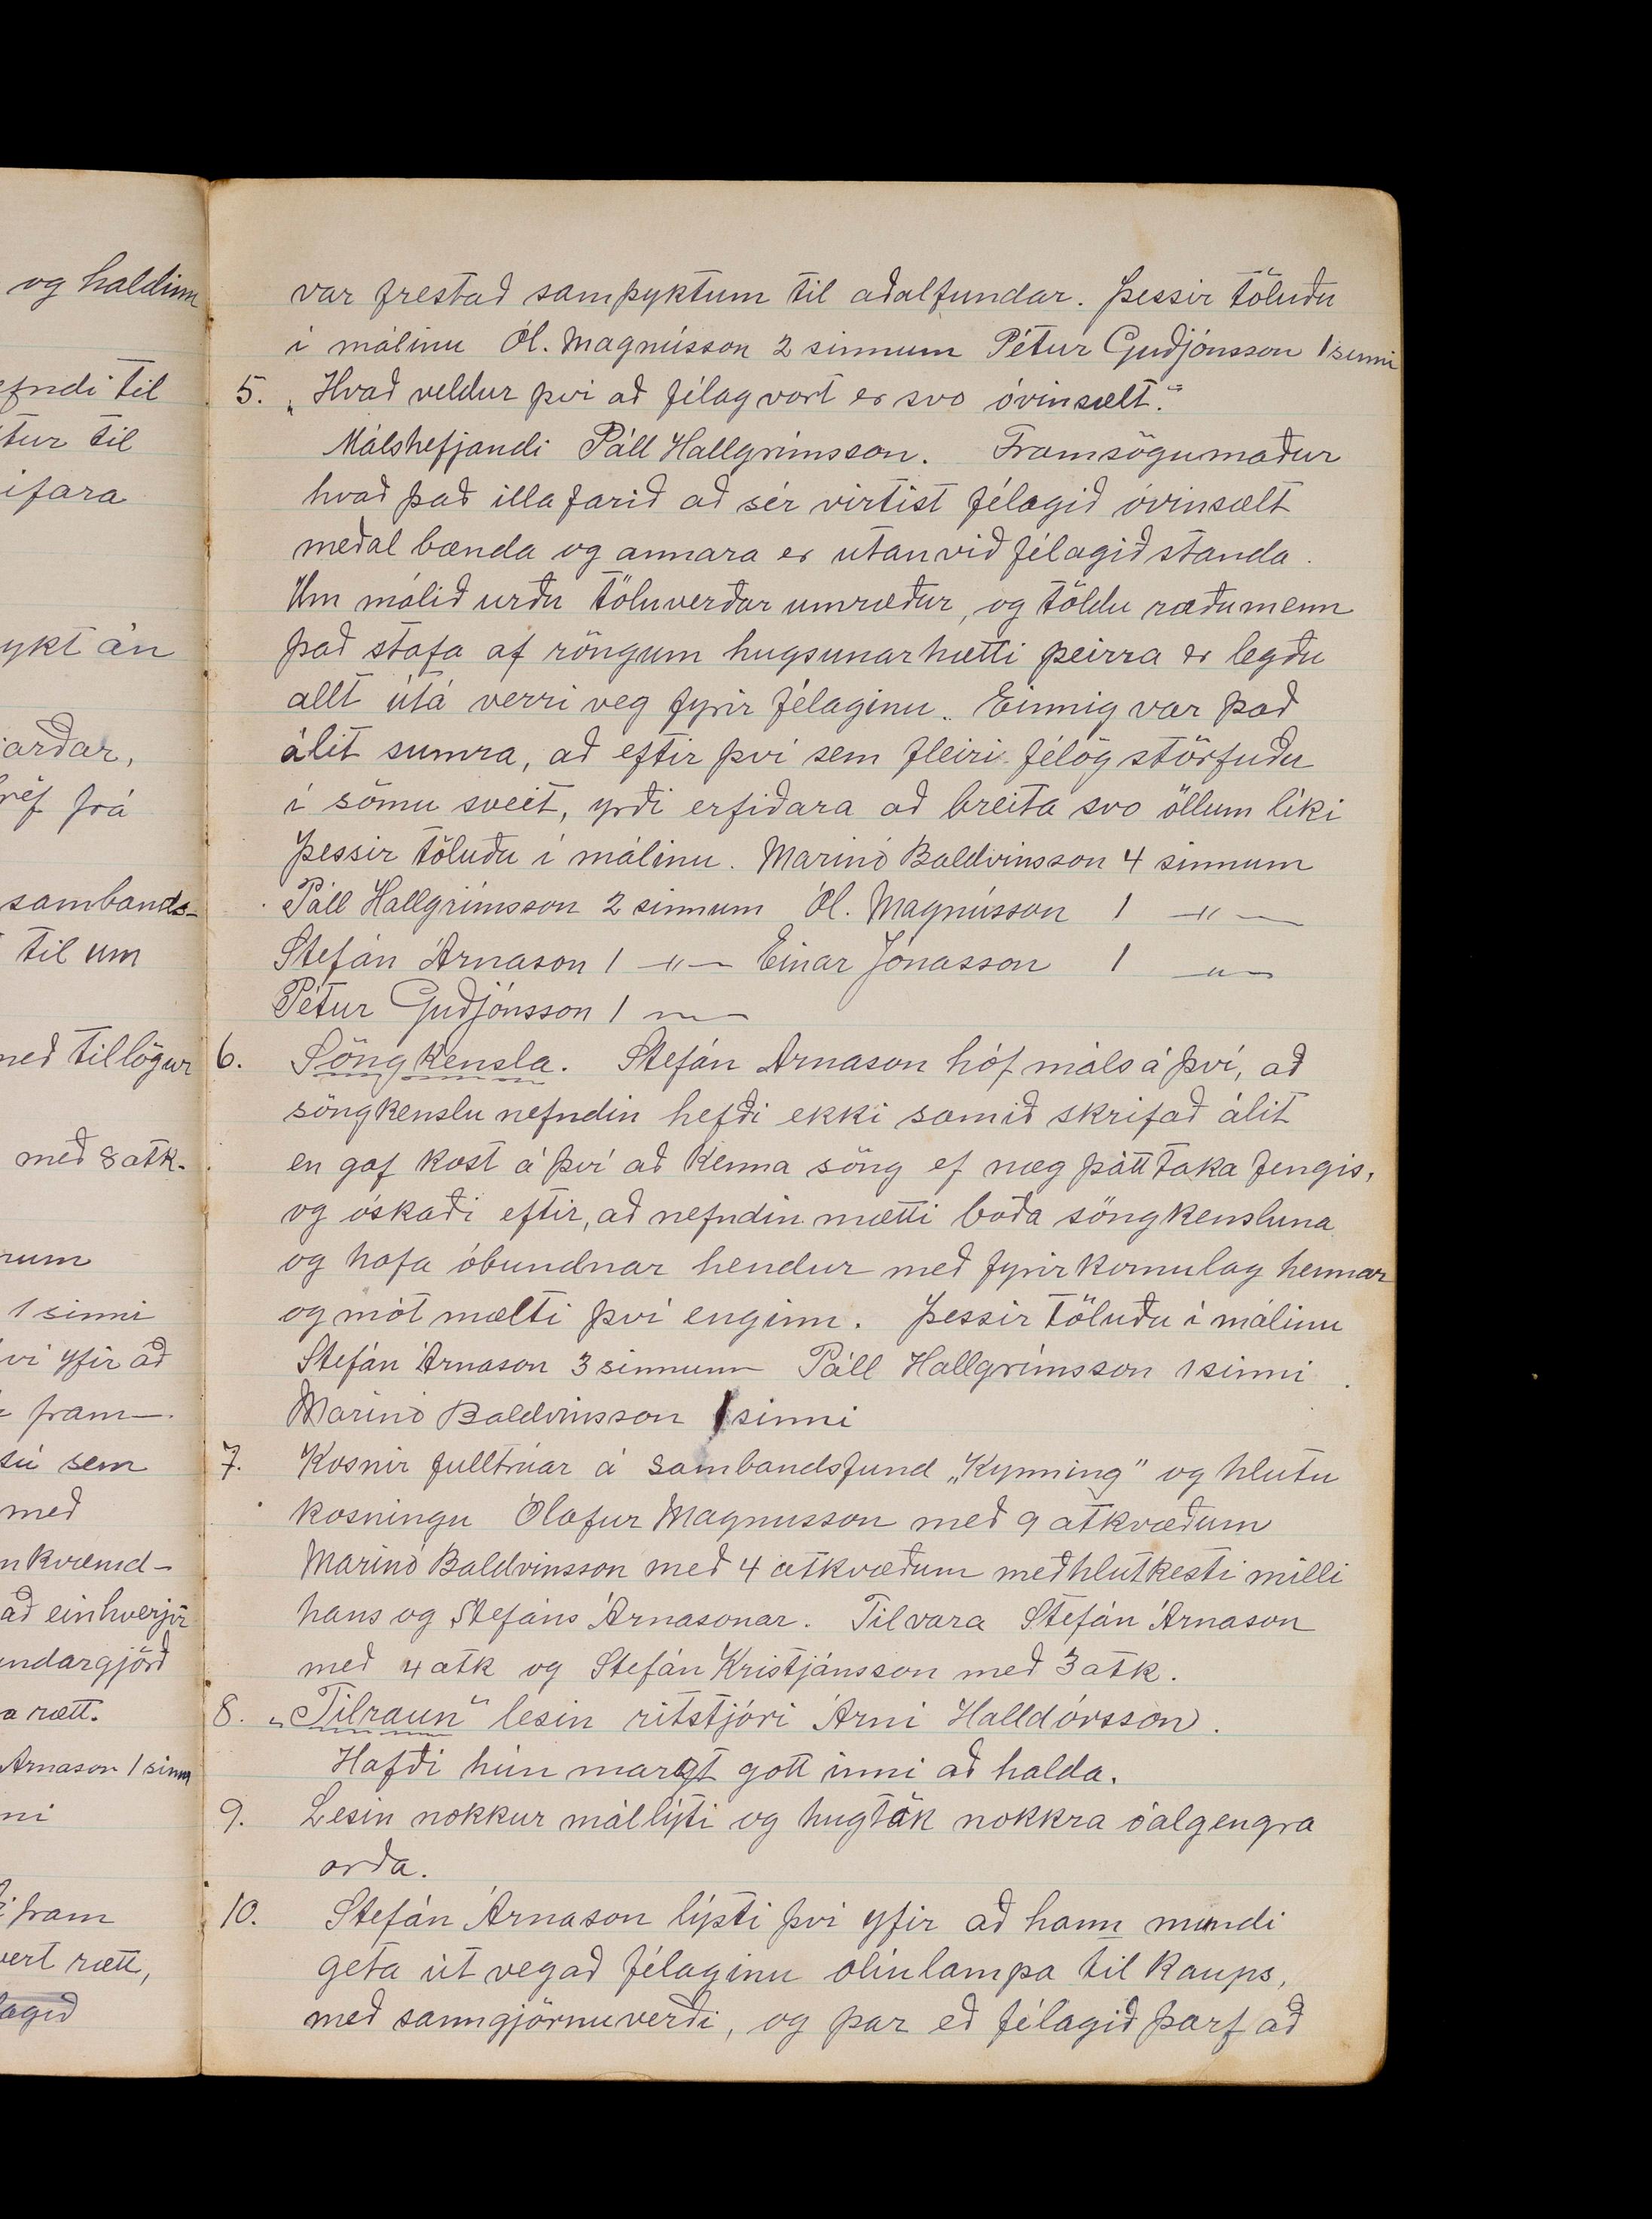 og haldinn
efndi til
tur til
ifara
ykt án
arðar,
réf frá
sambands-
til um
með tillögur
með 8 atk.
rum
1 sinni
ví yfir að
fram-
sú sem
með
nkvæmd-
að einhverjir
undargjörð
a rætt.
Árnason 1 sinn
ni
fram
vert rætt,
lagið
var frestað samþyktum til aðalfundar. Þessir töluðu
í málinu Ól. Magnússon 2 sinnum Pétur Guðjónsson 1 sinni
5. „Hvað veldur því að félag vort er svo óvinsælt."
Málshefjandi Páll Hallgrímsson. Framsögumaður
hvað það illa farið að sér virtist félagið óvinsælt
meðal bænda og annara er utan við félagið standa.
Um málið urðu töluverðar umræður, og töldu ræðumenn
það stafa af röngum hugsunarhætti þeirra er legðu
allt útá verri veg fyrir félaginu. Einnig var það
álit sumra, að eftir því sem fleiri félög störfuðu
í sömu sveit, yrði erfiðara að breita svo öllum líki
Þessir töluðu í málinu. Marinó Baldvinsson 4 sinnum
Páll Hallgrímsson 2 sinnum Ól. Magnússon 1 —"—
Stefán Árnason 1 —"— Einar Jónasson 1 —"—
Pétur Guðjónsson 1 —"—
6. Söngkensla. Stefán Arnason hóf máls á því, að
söngkenslu nefndin hefði ekki samið skrifað álit
en gaf kost á því að kenna söng ef næg þátttaka fengis,
og óskaði eftir, að nefndin mætti boða söngkensluna
og hafa óbundnar hendur með fyrirkomulag hennar
og mót mælti því enginn. Þessir töluðu í málinu
Stefán Árnason 3 sinnum Páll Hallgrímsson 1 sinni.
Marinó Baldvinsson 1 sinni
7. Kosnir fulltrúar á sambandsfund „Kynning" og hlutu
kosningu Ólafur Magnusson með 9 atkvæðum
Marinó Baldvinsson með 4 atkvæðum með hlutkesti milli
hans og Stefáns Árnasonar. Til vara Stefán Árnason
með 4 atk og Stefán Kristjánsson með 3 atk.
8. „Tilraun" lesin ritstjóri Árni Halldórsson.
Hafði hún margt gott inni að halda.
9. Lesin nokkur mállýti og hugtök nokkra óalgengra
orða.
10. Stefán Árnason lýsti því yfir að hann mundi
geta út vegað félaginu olíulampa til kaups,
með sanngjörnu verði, og þar eð félagið þarf að